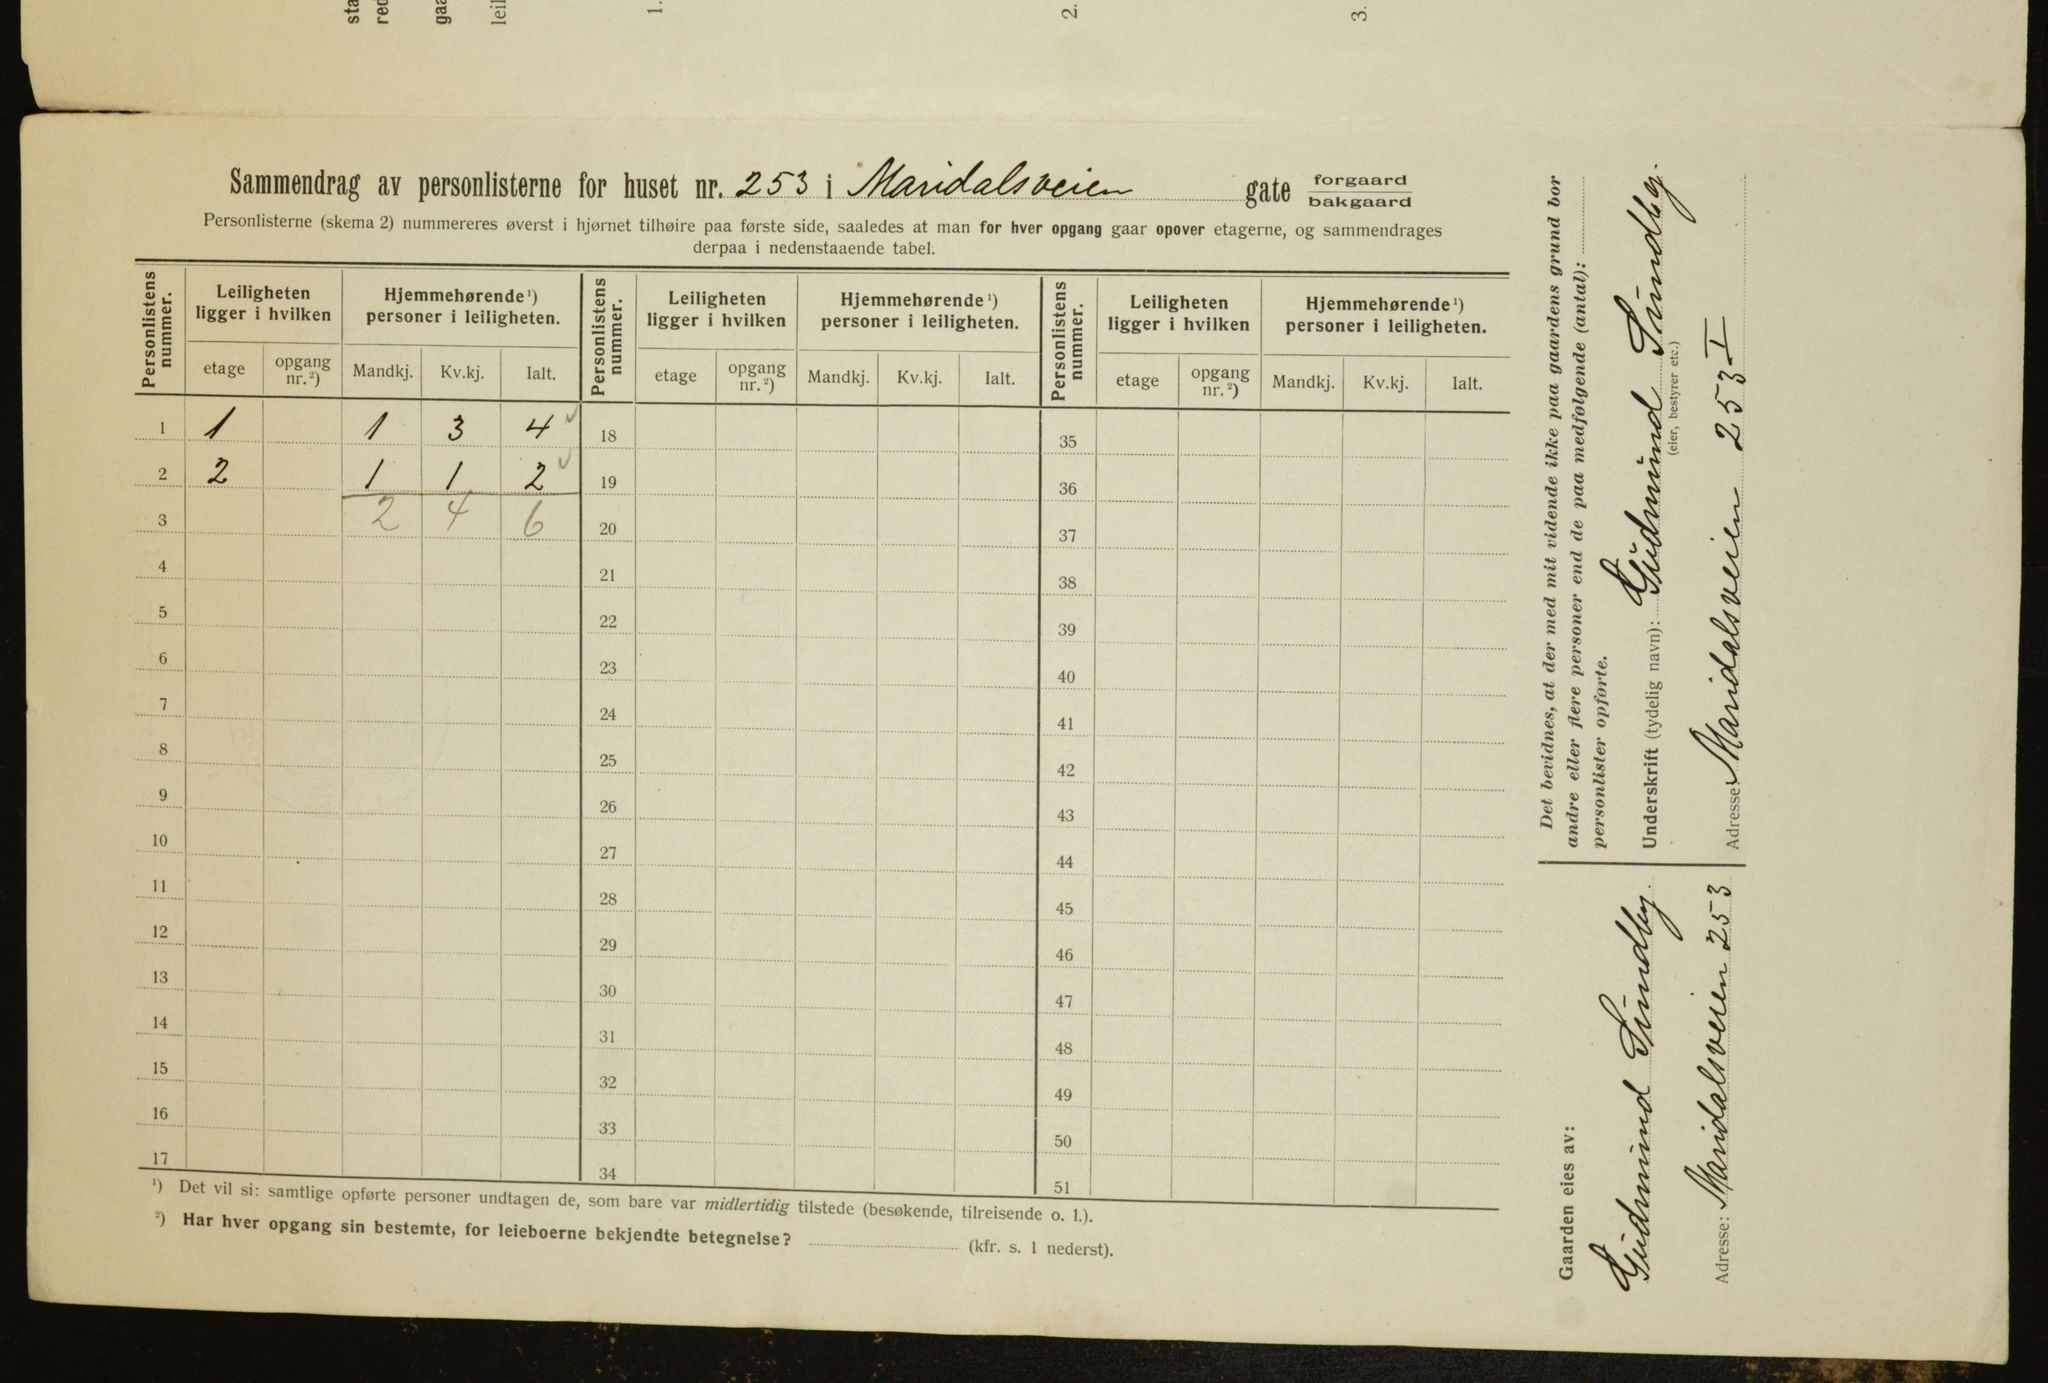 sta
red
gaa
leil
1.
2.
3.
Sammendrag av personlisterne for huset nr. 253 i Maridalsveien gate forgaard
bakgaard
Personlisterne (skema 2) nummereres øverst i hjørnet tilhøire paa første side, saaledes at man for hver opgang gaar opover etagerne, og sammendrages
derpaa i nedenstaaende tabel.
Personlistens nummer. Leiligheten ligger i hvilken Hjemmehørende ¹) personer i leiligheten. Personlistens nummer. Leiligheten ligger i hvilken Hjemmehørende ¹) personer i leiligheten. Personlistens nummer. Leiligheten ligger i hvilken Hjemmehørende ¹) personer i leiligheten.
etage opgang nr. ²) Mandkj. Kv.kj. Ialt. etage opgang nr. ²) Mandkj. Kv.kj. Ialt. etage opgang nr. ²) Mandkj. Kv.kj. Ialt.
1 1 1 3 4 ✓ 18 35
2 2 1 1 2 ✓ 19 36
3 2 4 6 20 37
4 21 38
5 22 39
6 23 40
7 24 41
8 25 42
9 26 43
10 27 44
11 28 45
12 29 46
13 30 47
14 31 48
15 32 49
16 33 50
17 34 51
¹) Det vil si: samtlige opførte personer undtagen de, som bare var midlertidig tilstede (besøkende, tilreisende o. l.).
²) Har hver opgang sin bestemte, for leieboerne bekjendte betegnelse? (kfr. s. 1 nederst).
Det bevidnes, at der med mit vidende ikke paa gaardens grund bor
andre eller flere personer end de paa medfølgende (antal):
personlister opførte.
Underskrift (tydelig navn): Gudmund Sundby.
(eier, bestyrer etc.)
Adresse: Maridalsveien 253 I
Gaarden eies av:
Gudmund Sundby.
Adresse: Maridalsveien 253